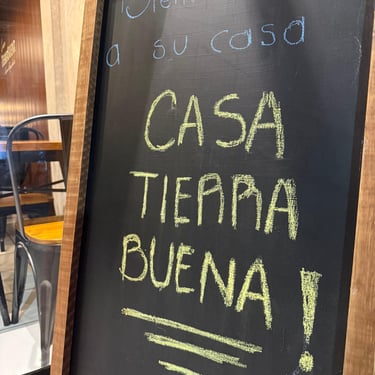 a su casa
CASA
TIERRA
BUENA!